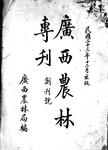 民國二十三年十二月出版
廣西農林
專刊
創刊號
廣西農林局編